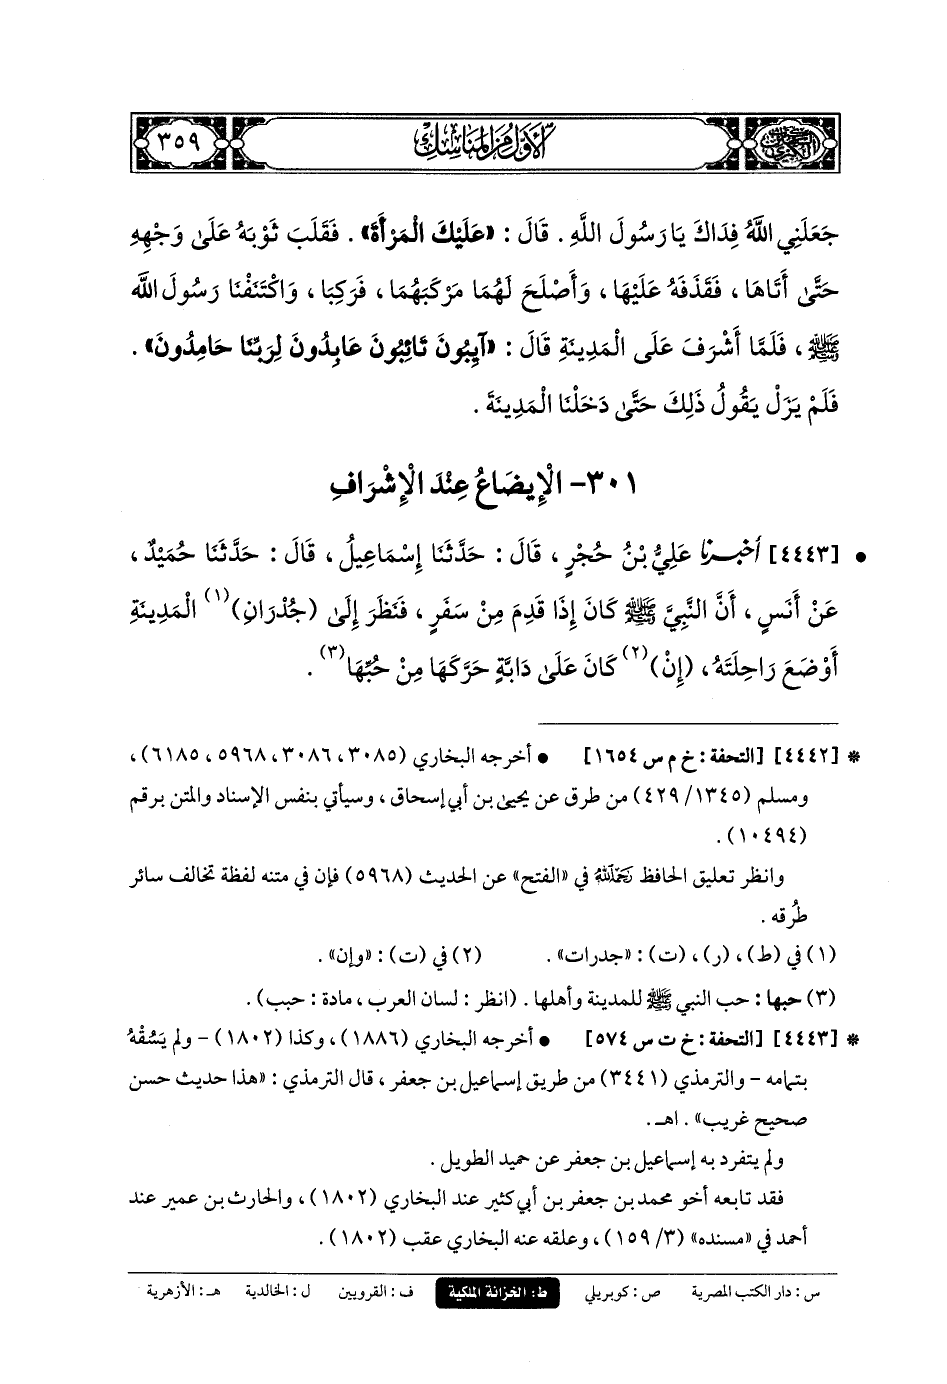 الأول من المناسك ٣٥٩
جَعَلَنِي اللَّهُ فِدَاكَ يَا رَسُولَ اللَّهِ . قَالَ : «عَلَيْكَ الْمَرْأَةَ» . فَقَلَبَ ثَوْبَهُ عَلَىٰ وَجْهِهِ
حَتَّىٰ أَتَاهَا ، فَقَذَفَهُ عَلَيْهَا ، وَأَصْلَحَ لَهُمَا مَرْكَبَهُمَا ، فَرَكِبَا ، وَاكْتَنَفْنَا رَسُولَ اللَّه
ﷺ ، فَلَمَّا أَشْرَفَ عَلَى الْمَدِينَةِ قَالَ : «آيِبُونَ تَائِبُونَ عَابِدُونَ لِرَبِّنَا حَامِدُونَ» .
فَلَمْ يَزَلْ يَقُولُ ذَلِكَ حَتَّىٰ دَخَلْنَا الْمَدِينَةَ .
٣٠١- الْإِيضَاعُ عِنْدَ الْإِشْرَافِ
• [٤٤٤٣] أَخْبَرَنَا عَلِيُّ بْنُ حُجْرٍ ، قَالَ : حَدَّثَنَا إِسْمَاعِيلُ ، قَالَ : حَدَّثَنَا حُمَيْدٌ ،
عَنْ أَنَسٍ ، أَنَّ النَّبِيَّ ﷺ كَانَ إِذَا قَدِمَ مِنْ سَفَرٍ ، فَنَظَرَ إِلَىٰ (جُدْرَانِ)(١) الْمَدِينَةِ
أَوْضَعَ رَاحِلَتَهُ ، (إِنْ)(٢) كَانَ عَلَىٰ دَابَّةٍ حَرَّكَهَا مِنْ حُبِّهَا(٣) .
* [٤٤٤٢] [التحفة : خ م س ١٦٥٤] • أخرجه البخاري (٣٠٨٥ ، ٣٠٨٦ ، ٥٩٦٨ ، ٦١٨٥) ،
ومسلم (١٣٤٥/ ٤٢٩) من طرق عن يحيىٰ بن أبي إسحاق ، وسيأتي بنفس الإسناد والمتن برقم
(١٠٤٩٤) .
وانظر تعليق الحافظ رَحِمَهُ اللَّهُ في «الفتح» عن الحديث (٥٩٦٨) فإن في متنه لفظة تخالف سائر
طُرقه .
(١) في (ط) ، (ر) ، (ت) : «جدرات» . (٢) في (ت) : «وإن» .
(٣) حبها : حب النبي ﷺ للمدينة وأهلها . (انظر : لسان العرب ، مادة : حبب) .
* [٤٤٤٣] [التحفة : خ ت س ٥٧٤] • أخرجه البخاري (١٨٨٦) ، وكذا (١٨٠٢) - ولم يَسُقْهُ
بتمامه - والترمذي (٣٤٤١) من طريق إسماعيل بن جعفر ، قال الترمذي : «هذا حديث حسن
صحيح غريب» . اهـ .
ولم يتفرد به إسماعيل بن جعفر عن حميد الطويل .
فقد تابعه أخو محمد بن جعفر بن أبي كثير عند البخاري (١٨٠٢) ، والحارث بن عمير عند
أحمد في «مسنده» (٣/ ١٥٩) ، وعلقه عنه البخاري عقب (١٨٠٢) .
س : دار الكتب المصرية ص : كوبريلي ط : الخزانة الملكية ف : القرويين ل : الخالدية هـ : الأزهرية